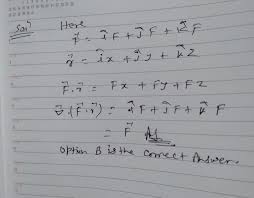 Sol^n Here
F⃗ = î F + ĵ F + k̂ F
r⃗ = î x + ĵ y + k̂ z
F⃗ . r⃗ = Fx + Fy + Fz
∇⃗ (F⃗ . r⃗) = î F + ĵ F + k̂ F
= F⃗ Ans
Option B is the correct Answer.